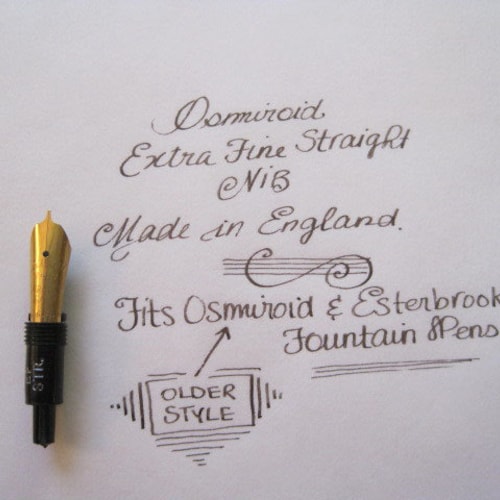 Osmiroid
Extra Fine Straight
NiB
Made in England.
Fits Osmiroid & Esterbrook
Fountain Pens
OLDER
STYLE
STR.